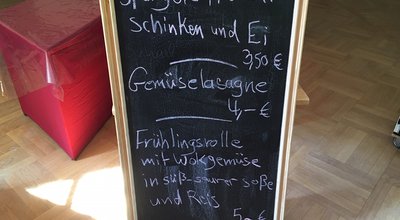 Schinken und Ei
3,50 €
Gemüselasagne
4,– €
Frühlingsrolle
mit Wokgemüse
in süß-saurer Soße
und Reis